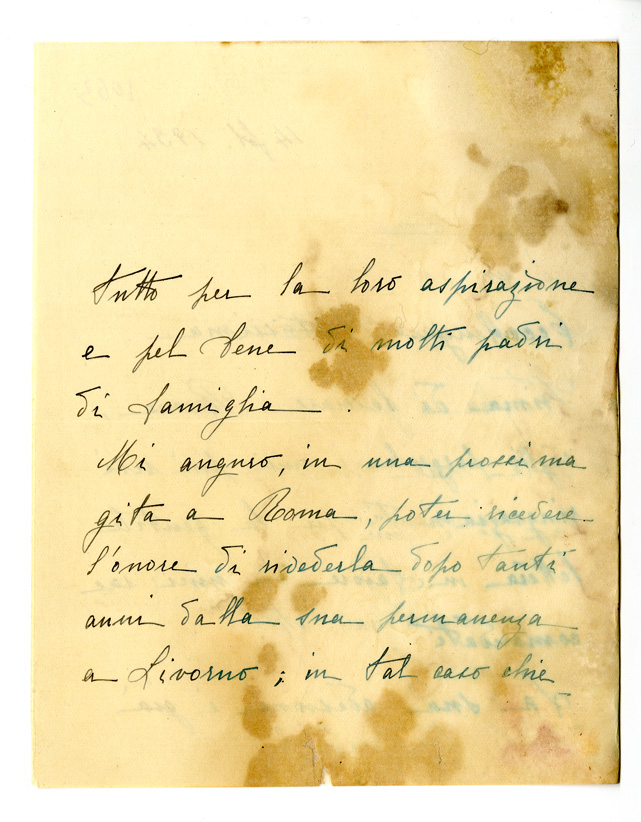 tutto per la loro aspirazione
e pel bene di molti padri
di famiglia.
Mi auguro, in una prossima
gita a Roma, poter ricevere
l'onore di rivederla dopo tanti
anni dalla sua permanenza
a Livorno; in tal caso chie
14 1934